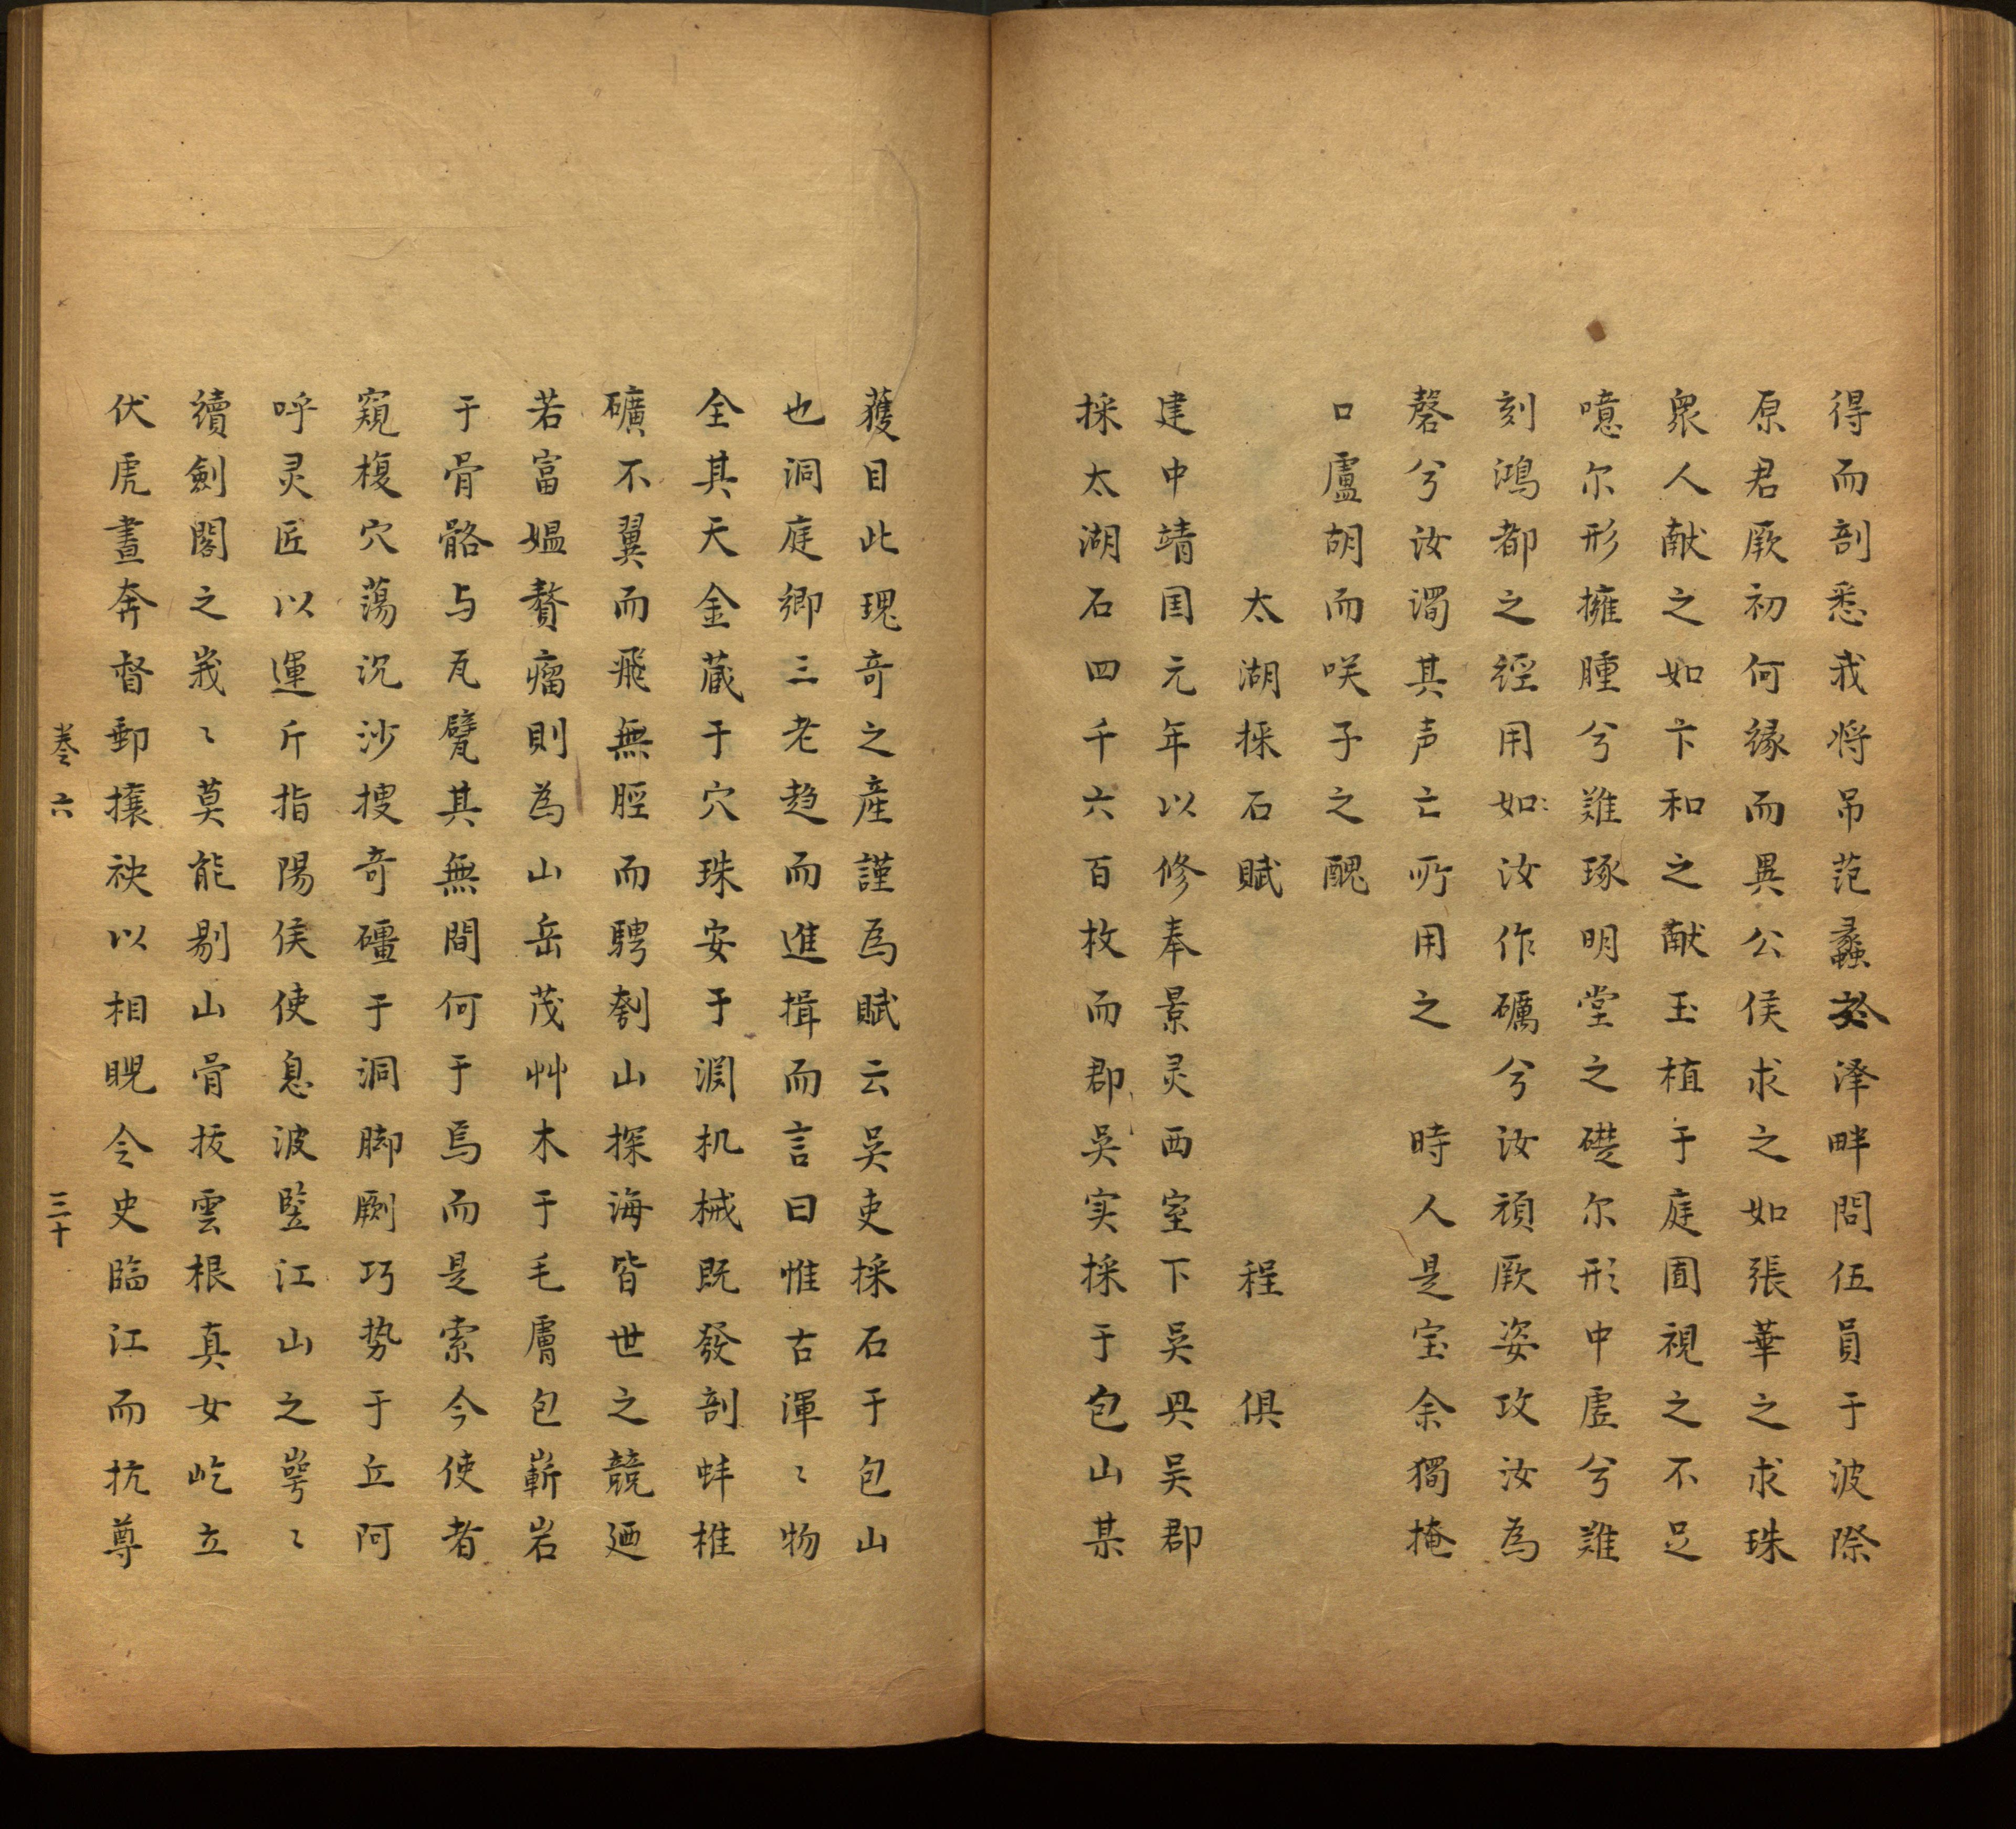 得而剖悉我将吊范蠡於泽畔問伍員于波際
原君厥初何緣而異公侯求之如張華之求珠
衆人献之如卞和之献玉植于庭囿視之不足
噫尔形擁腫兮難琢明堂之礎尔形中虛兮難
刻鴻都之経用如汝作礪兮汝頑厥姿攻汝為
磬兮汝濁其声亡所用之 時人是宝余獨掩
口盧胡而咲子之醜
太湖採石賦 程俱
建中靖国元年以修奉景灵西室下吳興吴郡
採太湖石四千六百枚而郡吳实採于包山某
獲目此瑰竒之產謹為賦云吴吏採石于包山
也洞庭鄉三老趋而進揖而言曰惟古渾〻物
全其天金蔵于穴珠安于淵机械既發剖蚌椎
礦不翼而飛無脛而騁刳山探海皆世之競廼
若富媼贅瘤則為山岳茂艸木于毛膚包嶄岩
于骨骼与瓦甓其無間何于焉而是索今使者
窺複穴蕩沉沙搜竒礓于洞脚劂巧势于丘阿
呼灵匠以運斤指陽侯使息波豎江山之㟧〻
續劍閣之峩〻莫能剔山骨拔雲根真女屹立
伏虎晝奔督郵攘袂以相睨令史臨江而抗尊
卷六 三十